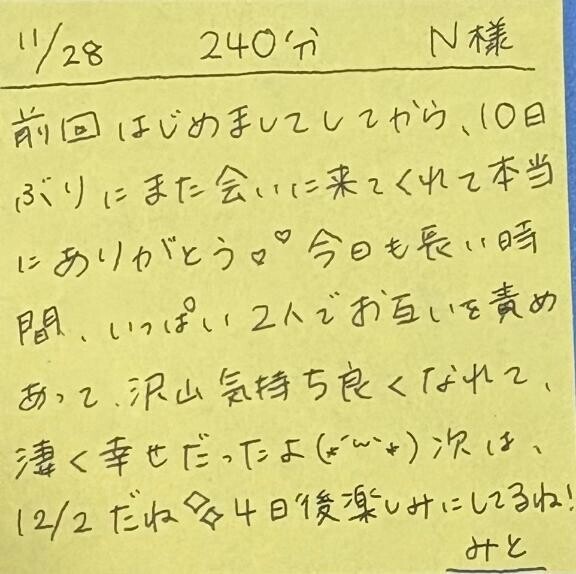 11/28 240分 N様
前回はじめましてしてから、10日
ぶりにまた会いに来てくれて本当
にありがとう♡♡今日も長い時
間、いっぱい2人でお互いを責め
あって、沢山気持ち良くなれて、
凄く幸せだったよ(*´ω`*)次は、
12/2だね✧✧4日後楽しみにしてるね!
みと